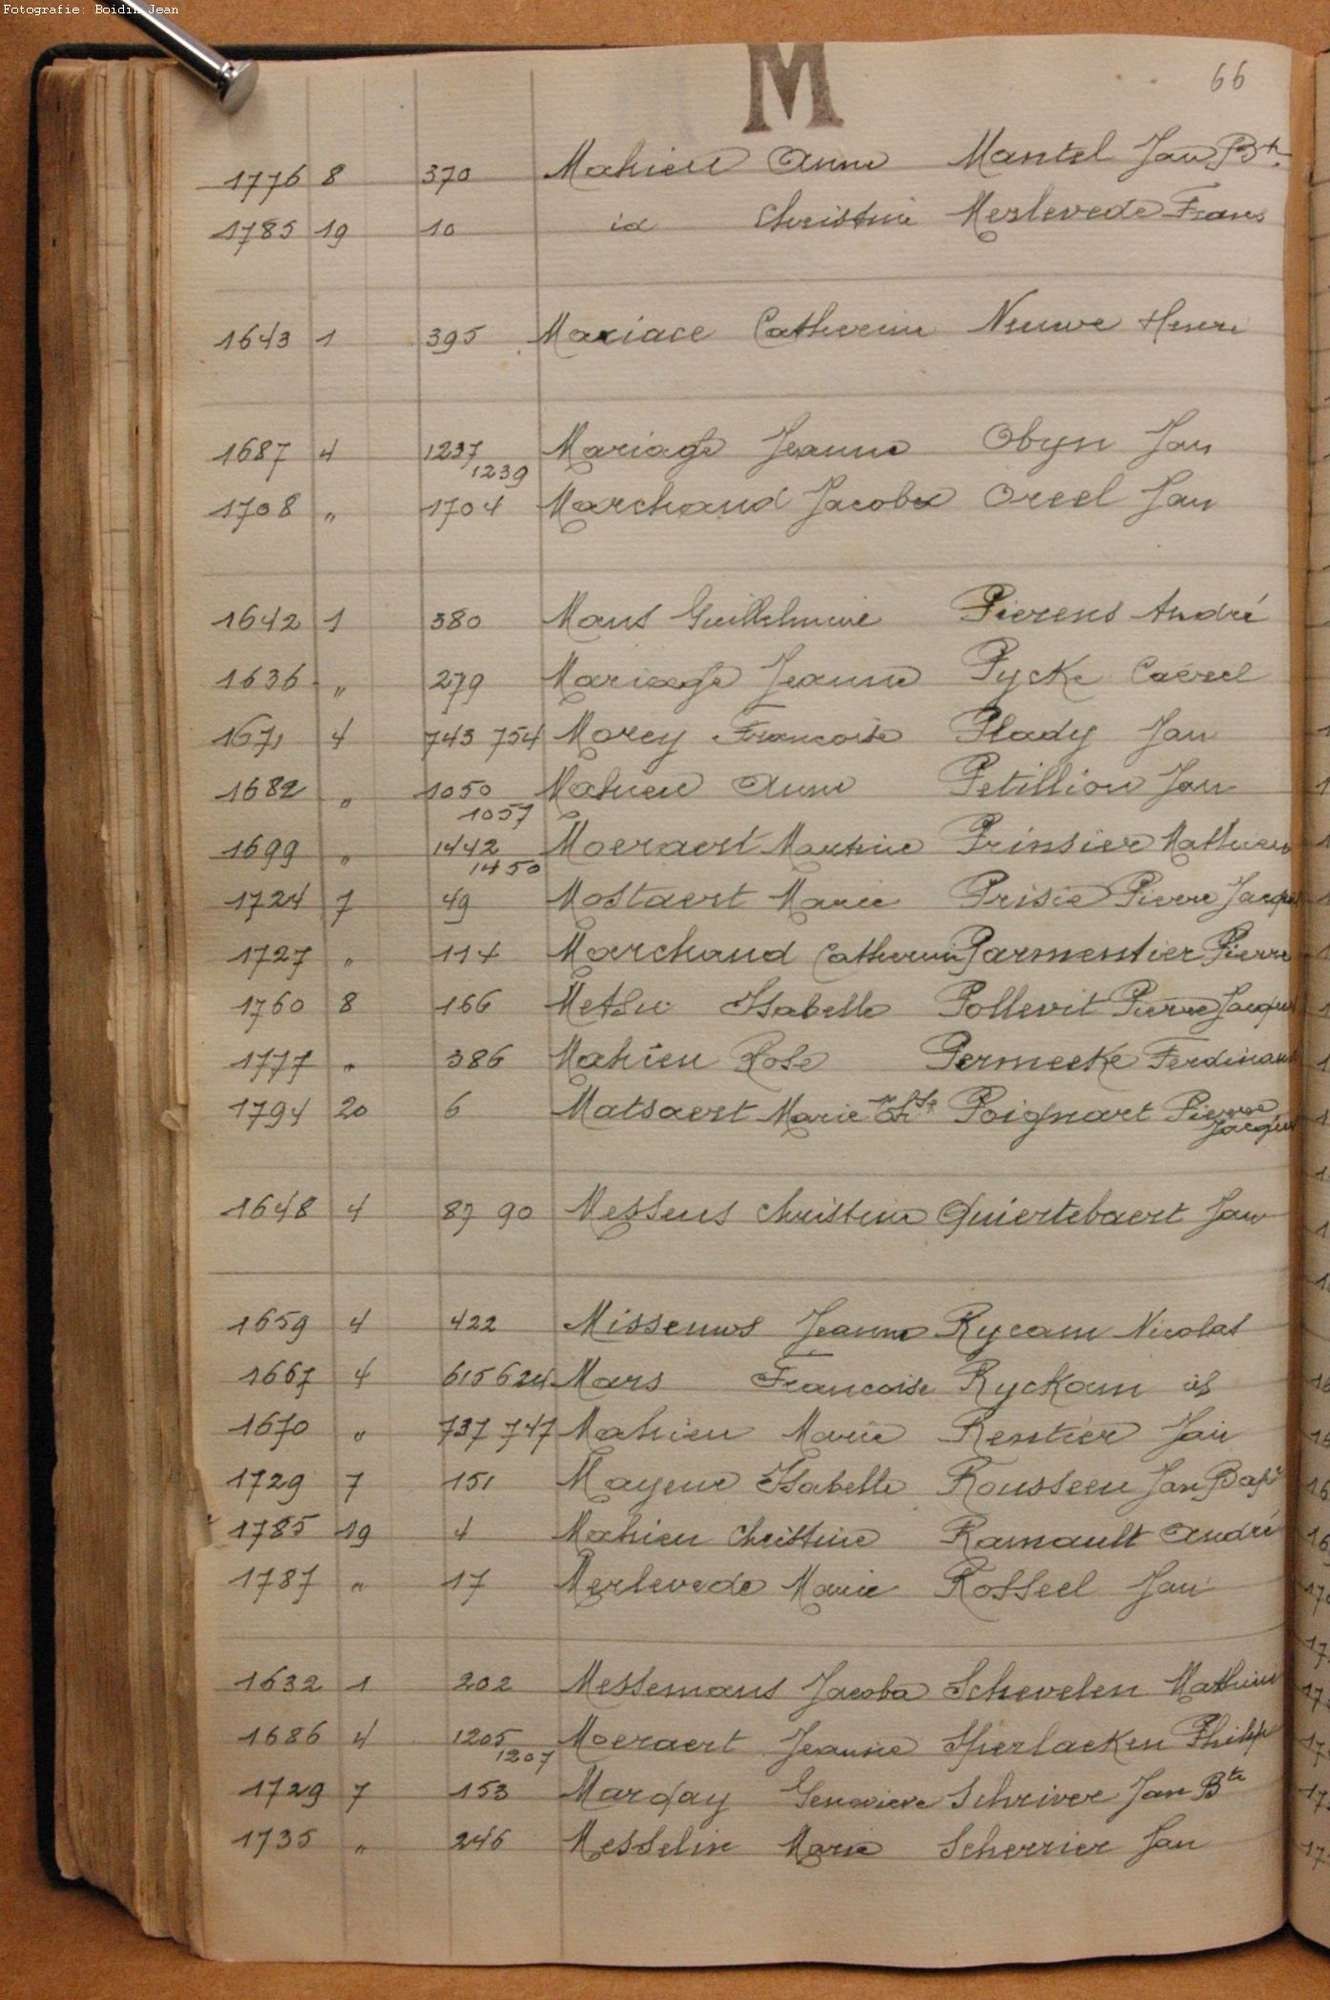 Fotografie: Boidin Jean
M
66
1776 8 370 Mahieu Anne Mantel Jan Bte
1785 19 10 id Christine Merlevede Frans
1643 1 395 Mariace Catherine Neuwe Henri
1687 4 1237 1239 Mariage Jeanne Obyn Jan
1708 " 1704 Marchand Jacoba Oreel Jan
1642 1 380 Mans Guillelmine Pierens André
1636 " 279 Mariage Jeanne Pycke Carel
1671 4 743 754 Morey Francoise Plady Jan
1682 " 1050 1057 Mahieu Anne Petillion Jan
1699 " 1442 1450 Moeraert Martine Prinsier Mathieu
1724 7 49 Mostaert Marie Prisie Pierre Jacques
1727 " 114 Marchand Catherine Parmentier Pierre
1760 8 166 Methu Isabelle Pollevit Pierre Jacques
1777 " 386 Mahieu Rose Permeeke Ferdinand
1794 20 6 Matsaert Marie Poignart Pierre Jacques
1648 4 87 90 Messens Christine Quiertebaert Jan
1659 4 422 Missenws Jeanne Rycam Nicolas
1667 4 615 624 Mars Francoise Ryckam id
1670 " 737 747 Mahieu Marie Rentier Jan
1729 7 151 Mayeur Isabelle Rousseeu Jan Bapt
1785 19 4 Mahieu Christine Ramault André
1787 " 17 Merlevede Marie Rosseel Jan
1632 1 202 Messemans Jacoba Schevelen Mathieu
1686 4 1205 1207 Moeraert Jeanne Sperlaeken Philip
1729 7 153 Marday Genevieve Schriver Jan Bte
1735 " 246 Messelin Marie Scherrier Jan